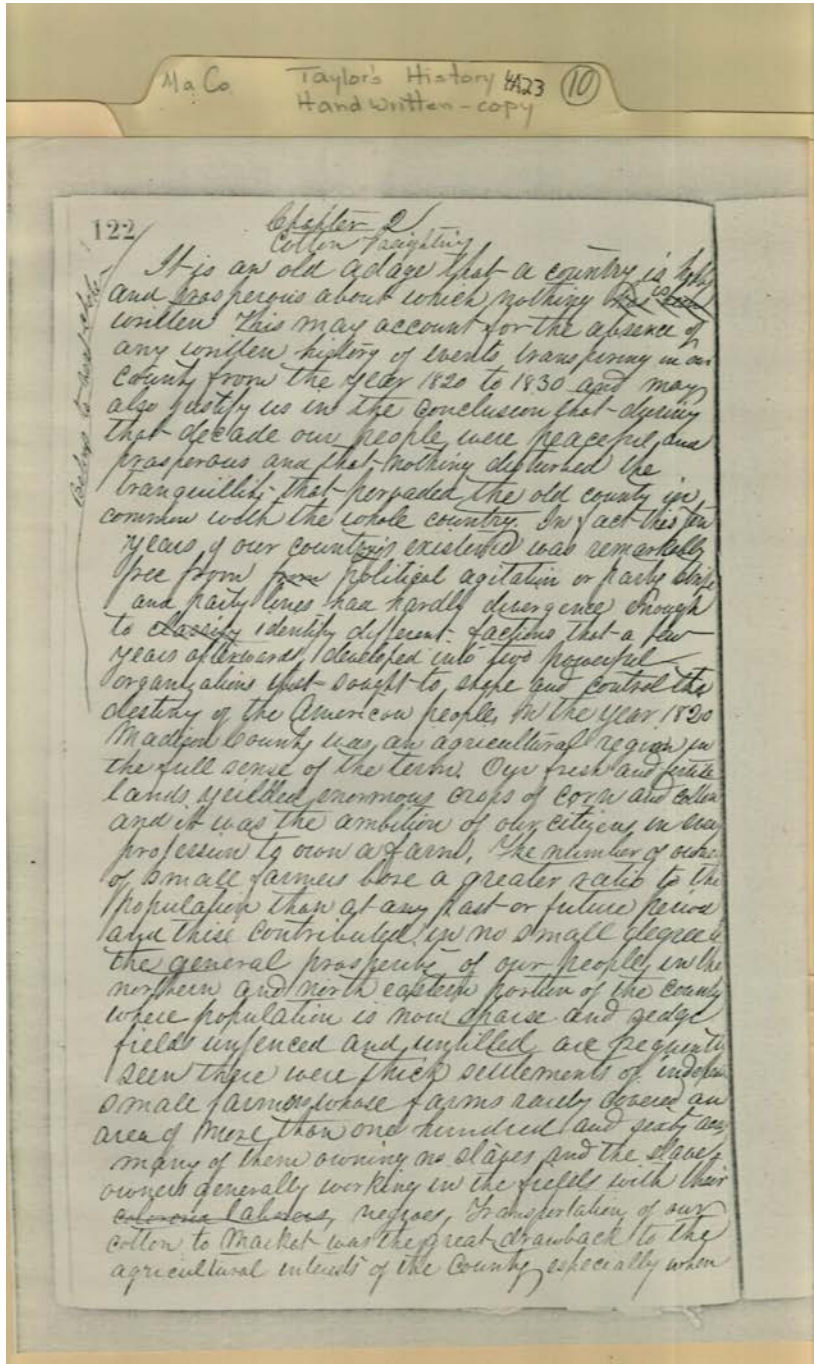 Ma Co Taylor's History 4A23 10
Hand written - copy
122
Chapter 2
Cotton Freighting
It is an old adage that a country is happy
and prosperous about which nothing is
written This may account for the absence of
any written history of events transpiring in our
County from the year 1820 to 1830 and may
also justify us in the conclusion that during
that decade our people were peaceful and
prosperous and that nothing disturbed the
tranquillity that pervaded the old county in
common with the whole country. In fact this ten
years of our country's existence was remarkably
free from from political agitation or party strife
and party lines had hardly divergence enough
to classify identify different factions that a few
years afterwards developed into two powerful
organizations that sought to shape and control the
destiny of the American people. In the year 1820
Madison County was an agricultural region in
the full sense of the term. Our fresh and fertile
lands yeilded enormous crops of corn and cotton
and it was the ambition of our citizens in every
profession to own a farm. The number of
of small farmers bore a greater ratio to the
population than at any past or future period
and these contributed in no small degree to
the general prosperity of our people in the
northern and north eastern portion of the county
where population is now sparse and sedge
fields unfenced and untilled are frequently
seen there were thick settlements of
small farmers whose farms rarely covered an
area of more than one hundred and sixty acres
many of them owning no slaves and the slave
owners generally working in the fields with their
laborers negroes. Transportation of our
cotton to market was the great drawback to the
agricultural interests of the County especially when